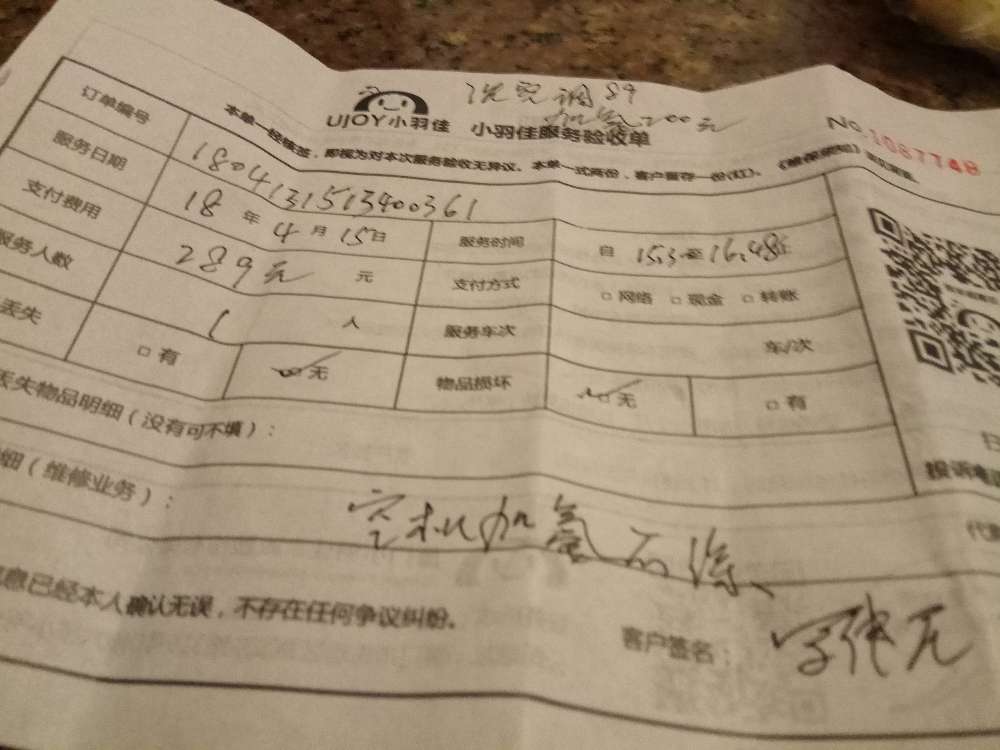 洗空调89
加氟200元
UJOY小羽佳 小羽佳服务验收单
No.1087748
本单一经核签，即视为对本次服务验收无异议。本单一式两份，客户留存一份(红)。
订单编号 180413151513400361
服务日期 18年4月15日 服务时间 自
支付费用 289元 元 支付方式 □网络 □现金 □转账
服务人数 1 人 服务车次 车/次
丢失 □有 □无 物品损坏 □无 □有
丢失物品明细（没有可不填）：
细（维修业务）：
空 加氟
息已经本人确认无误，不存在任何争议纠纷。
客户签名：
投诉电